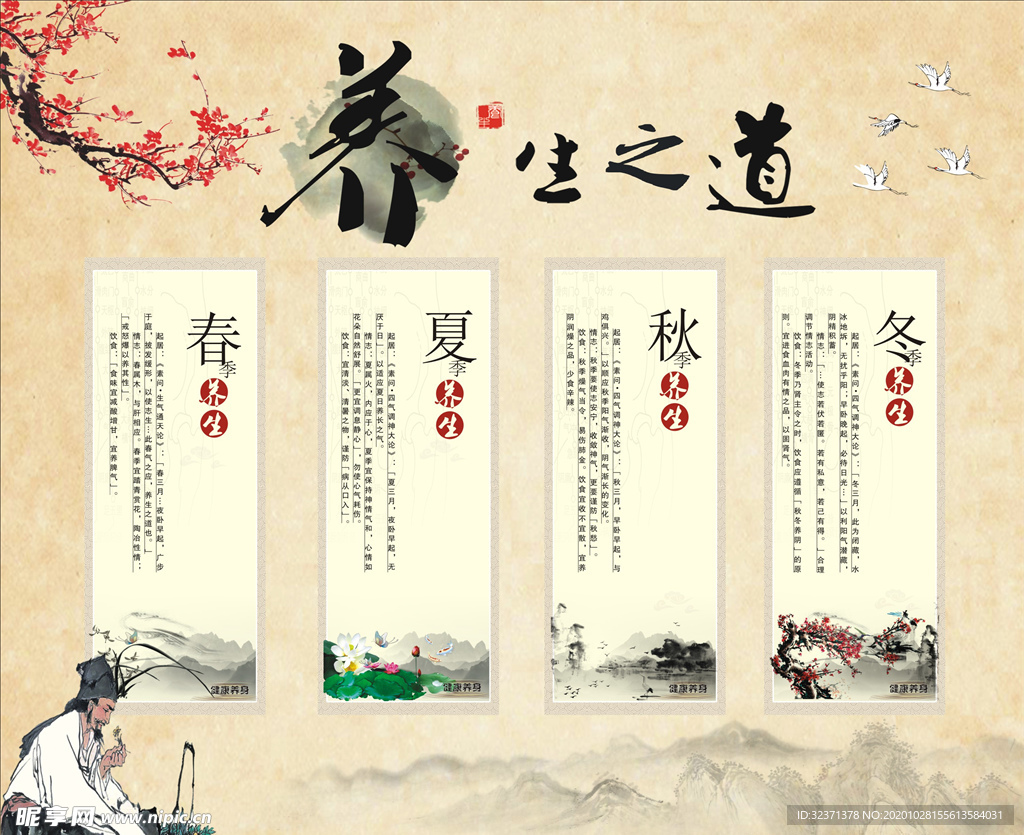 养生之道
春季养生
起居：《素问·生气通天论》：「春三月…夜卧早起，广步
于庭，披发缓形，以使志生…此春气之应，养生之道也。」
情志：春属木，与肝相应。春季宜踏青赏花，陶冶性情；
「戒怒爆以养其性」。
饮食：「食味宜减酸增甘，宜养脾气」。
健康养身
夏季养生
起居：《素问·四气调神大论》：「夏三月，夜卧早起，无
厌于日」。以适应夏日养长之气。
情志：夏属火，内应于心，夏季宜保持神情气和，心情如
花朵自然舒展。「更宜调息静心」，勿使心气耗伤。
饮食：宜清淡、清暑之物，谨防「病从口入」。
健康养身
秋季养生
起居：《素问·四气调神大论》：「秋三月，早卧早起，与
鸡俱兴。」以顺应秋季阳气渐收，阴气渐长的变化。
情志：秋季要使志安宁，收敛神气，更要谨防「秋愁」。
饮食：秋季燥气当令，易伤肺金。饮食宜收不宜散，宜养
阴润燥之品，少食辛辣。
健康养身
冬季养生
起居：《素问·四气调神大论》：「冬三月，此为闭藏，水
冰地坼，无扰乎阳；早卧晚起，必待日光…」以利阳气潜藏，
阴精积蓄。
情志：「…使志若伏若匿。若有私意，若己有得。」合理
调节情志活动。
饮食：冬季乃肾主令之时，饮食应遵循「秋冬养阴」的原
则。宜进食血肉有情之品，以固肾气。
健康养身
昵享网 www.nipic.cn
ID:32371378 NO:20201028155613584031